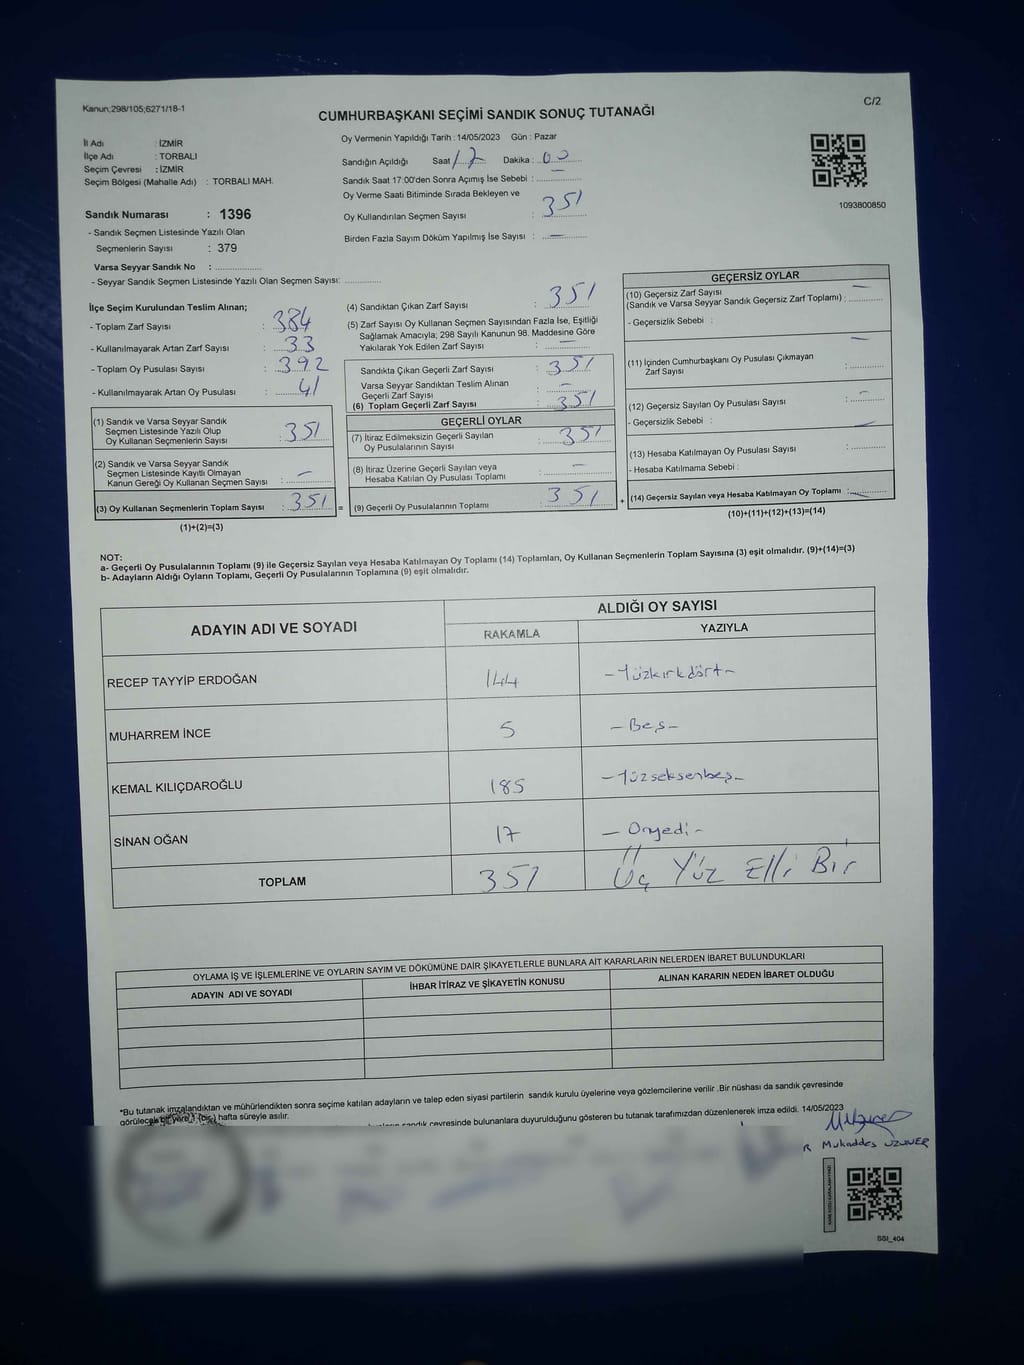 Kanun;298/105;6271/18-1
C/2
CUMHURBAŞKANI SEÇİMİ SANDIK SONUÇ TUTANAĞI
İl Adı : İZMİR
İlçe Adı : TORBALI
Seçim Çevresi : İZMİR
Seçim Bölgesi (Mahalle Adı) : TORBALI MAH.
Sandık Numarası : 1396
- Sandık Seçmen Listesinde Yazılı Olan
Seçmenlerin Sayısı : 379
Varsa Seyyar Sandık No :
- Seyyar Sandık Seçmen Listesinde Yazılı Olan Seçmen Sayısı:
Oy Vermenin Yapıldığı Tarih : 14/05/2023 Gün : Pazar
Sandığın Açıldığı Saat 17 Dakika : 00
Sandık Saat 17:00'den Sonra Açımış İse Sebebi : —
Oy Verme Saati Bitiminde Sırada Bekleyen ve
Oy Kullandırılan Seçmen Sayısı : 351
Birden Fazla Sayım Döküm Yapılmış İse Sayısı : —
1093800850
İlçe Seçim Kurulundan Teslim Alınan;
- Toplam Zarf Sayısı : 384
- Kullanılmayarak Artan Zarf Sayısı : 33
- Toplam Oy Pusulası Sayısı : 392
- Kullanılmayarak Artan Oy Pusulası : 41
(1) Sandık ve Varsa Seyyar Sandık
Seçmen Listesinde Yazılı Olup
Oy Kullanan Seçmenlerin Sayısı : 351
(2) Sandık ve Varsa Seyyar Sandık
Seçmen Listesinde Kayıtlı Olmayan
Kanun Gereği Oy Kullanan Seçmen Sayısı : —
(3) Oy Kullanan Seçmenlerin Toplam Sayısı : 351
(1)+(2)=(3)
(4) Sandıktan Çıkan Zarf Sayısı : 351
(5) Zarf Sayısı Oy Kullanan Seçmen Sayısından Fazla İse, Eşitliği
Sağlamak Amacıyla; 298 Sayılı Kanunun 98. Maddesine Göre
Yakılarak Yok Edilen Zarf Sayısı : —
Sandıkta Çıkan Geçerli Zarf Sayısı : 351
Varsa Seyyar Sandıktan Teslim Alınan
Geçerli Zarf Sayısı : —
(6) Toplam Geçerli Zarf Sayısı : 351
GEÇERLİ OYLAR
(7) İtiraz Edilmeksizin Geçerli Sayılan
Oy Pusulalarının Sayısı : 351
(8) İtiraz Üzerine Geçerli Sayılan veya
Hesaba Katılan Oy Pusulası Toplamı : —
= (9) Geçerli Oy Pusulalarının Toplamı : 351
GEÇERSİZ OYLAR
(10) Geçersiz Zarf Sayısı
(Sandık ve Varsa Seyyar Sandık Geçersiz Zarf Toplamı) : —
- Geçersizlik Sebebi :
(11) İçinden Cumhurbaşkanı Oy Pusulası Çıkmayan
Zarf Sayısı : —
(12) Geçersiz Sayılan Oy Pusulası Sayısı : —
- Geçersizlik Sebebi :
(13) Hesaba Katılmayan Oy Pusulası Sayısı : —
- Hesaba Katılmama Sebebi :
+ (14) Geçersiz Sayılan veya Hesaba Katılmayan Oy Toplamı : —
(10)+(11)+(12)+(13)=(14)
NOT:
a- Geçerli Oy Pusulalarının Toplamı (9) ile Geçersiz Sayılan veya Hesaba Katılmayan Oy Toplamı (14) Toplamları, Oy Kullanan Seçmenlerin Toplam Sayısına (3) eşit olmalıdır. (9)+(14)=(3)
b- Adayların Aldığı Oyların Toplamı, Geçerli Oy Pusulalarının Toplamına (9) eşit olmalıdır.
ADAYIN ADI VE SOYADI
ALDIĞI OY SAYISI
RAKAMLA YAZIYLA
RECEP TAYYİP ERDOĞAN 144 - Yüzkırkdört -
MUHARREM İNCE 5 - Beş -
KEMAL KILIÇDAROĞLU 185 - Yüzseksenbeş -
SİNAN OĞAN 17 - Onyedi -
TOPLAM 351 Üç Yüz Elli Bir
OYLAMA İŞ VE İŞLEMLERİNE VE OYLARIN SAYIM VE DÖKÜMÜNE DAİR ŞİKAYETLERLE BUNLARA AİT KARARLARIN NELERDEN İBARET BULUNDUKLARI
ADAYIN ADI VE SOYADI İHBAR İTİRAZ VE ŞİKAYETİN KONUSU ALINAN KARARIN NEDEN İBARET OLDUĞU
*Bu tutanak imzalandıktan ve mühürlendikten sonra seçime katılan adayların ve talep eden siyasi partilerin sandık kurulu üyelerine veya gözlemcilerine verilir .Bir nüshası da sandık çevresinde
görülecek bir yere 1 (bir) hafta süreyle asılır.
sandık çevresinde bulunanlara duyurulduğunu gösteren bu tutanak tarafımızdan düzenlenerek imza edildi. 14/05/2023
Mukaddes UZUNER
SSI_404